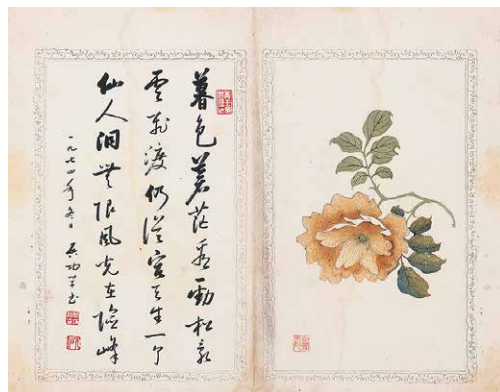 暮色蒼茫看勁松亂
雲飛渡仍從容天生一个
仙人洞無限風光在險峰
一九七四年冬日